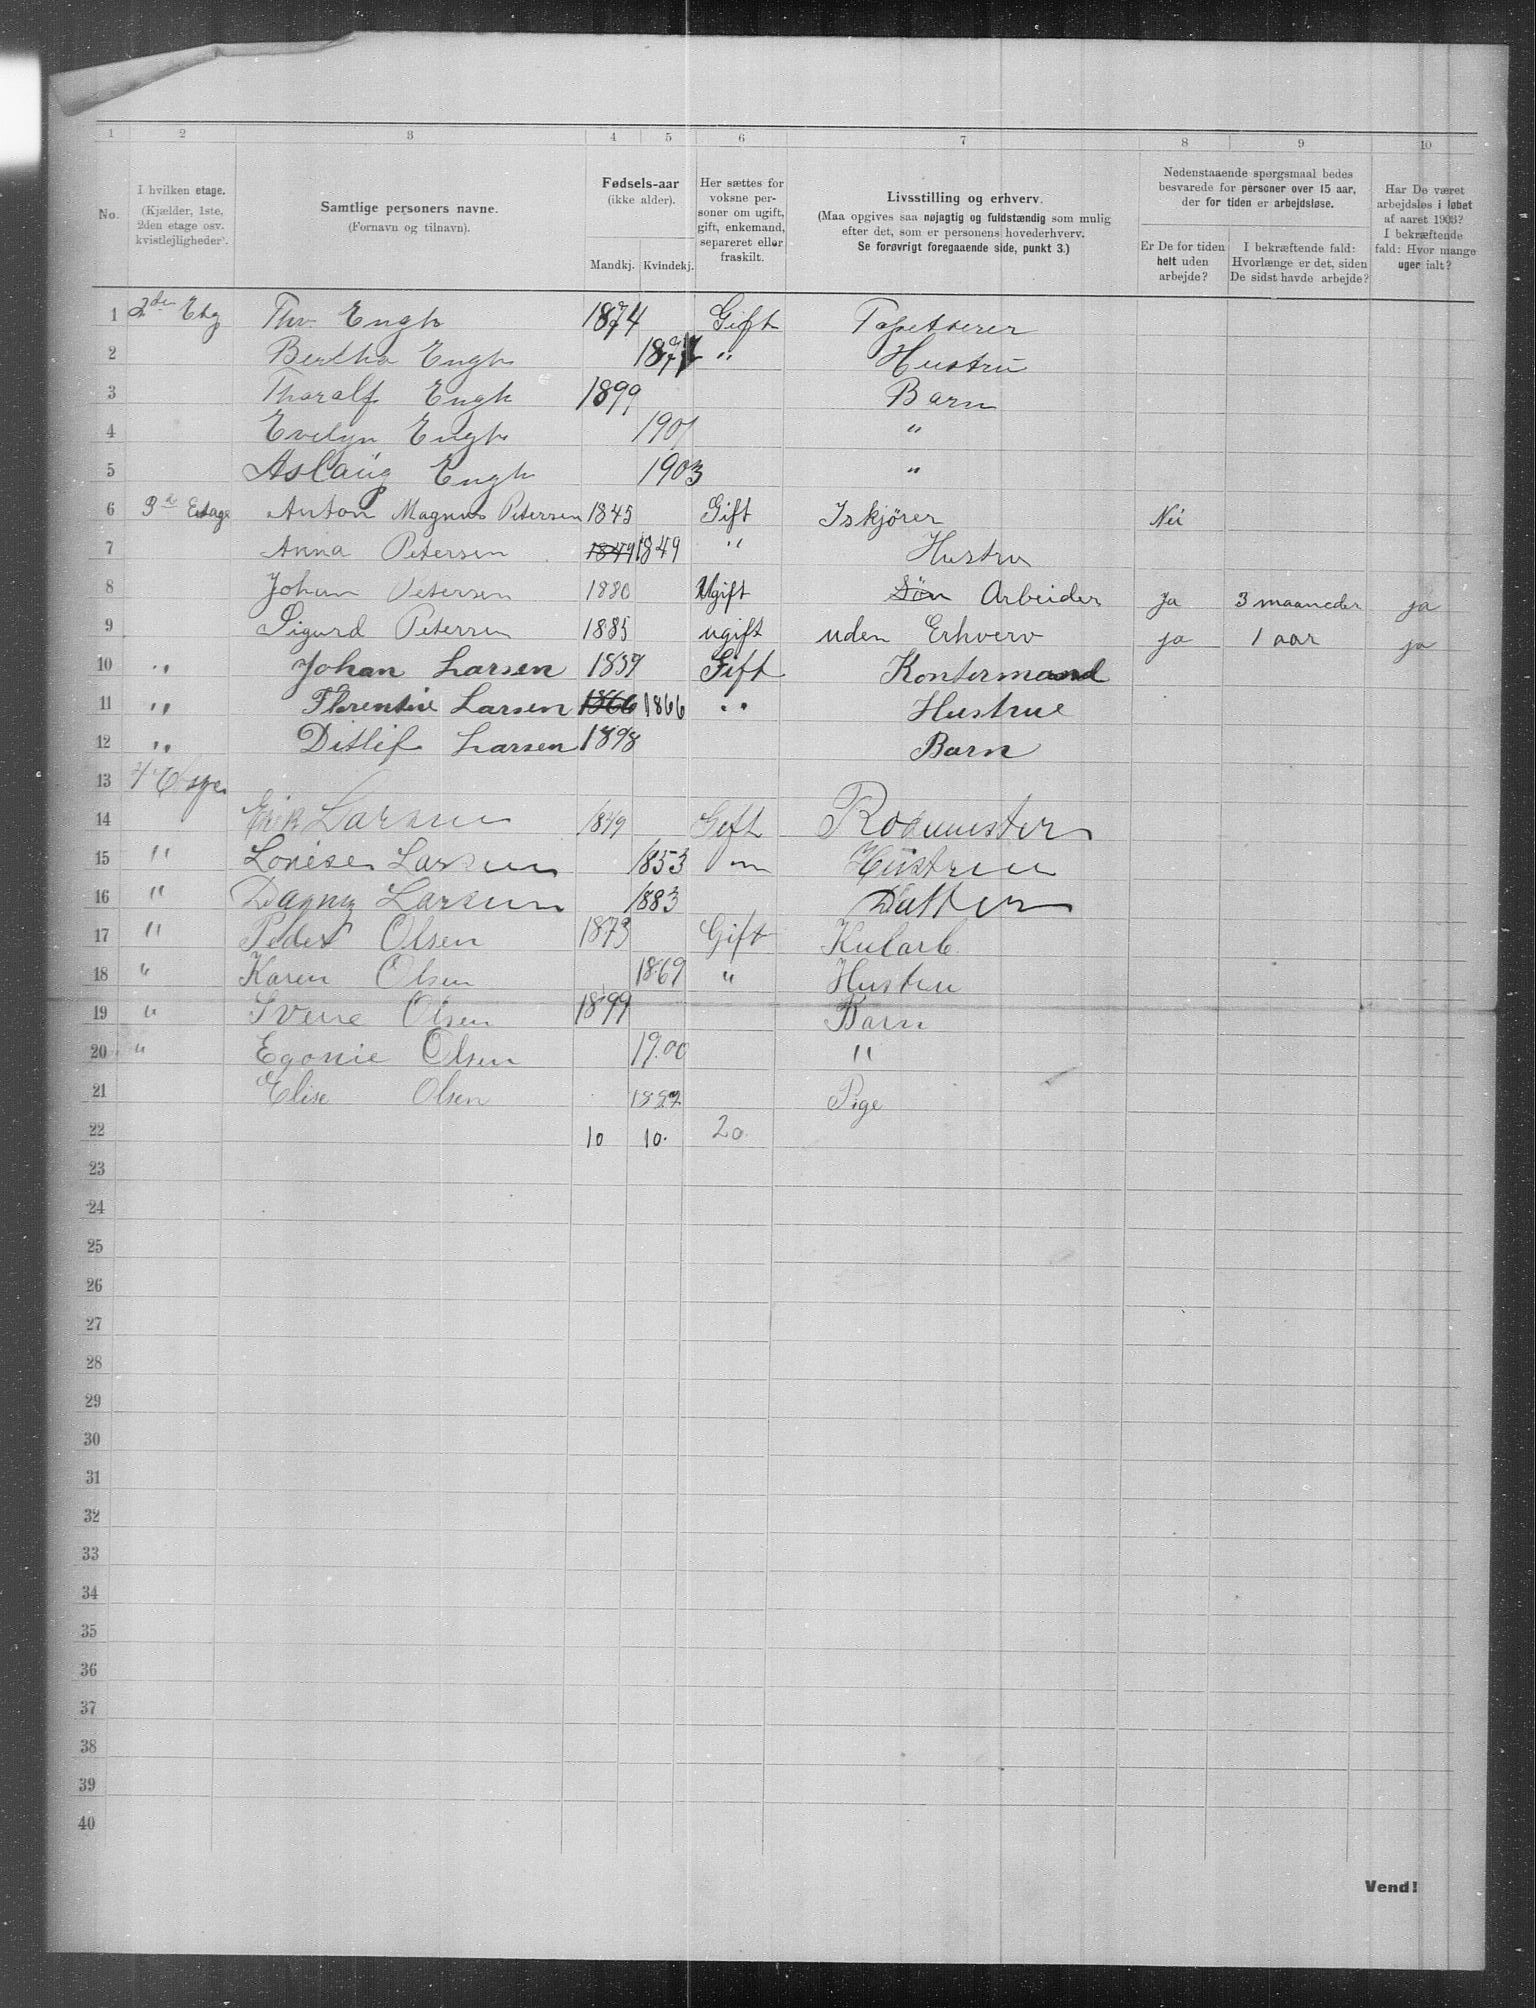 1 2 3 4 5 6 7 8 9 10
No.
I hvilken etage.
(Kjælder, 1ste,
2den etage osv.
kvistlejligheder).
Samtlige personers navne.
(Fornavn og tilnavn).
Fødsels-aar
(ikke alder).
Mandkj. Kvindekj.
Her sættes for
voksne per-
soner om ugift,
gift, enkemand,
separeret eller
fraskilt.
Livsstilling og erhverv.
(Maa opgives saa nøjagtig og fuldstændig som mulig
efter det, som er personens hovederhverv.
Se forøvrigt foregaaende side, punkt 3.)
Nedenstaaende spørgsmaal bedes
besvarede for personer over 15 aar,
der for tiden er arbejdsløse.
Er De for tiden
helt uden
arbejde?
I bekræftende fald:
Hvorlænge er det, siden
De sidst havde arbejde?
Har De været
arbejdsløs i løbet
af aaret 1903?
I bekræftende
fald: Hvor mange
uger ialt?
1 2den Etg Thv. Engh 1874 Gift Tapetserer
2 Bertha Engh " Hustru
3 Tharalf Engh 1899 Barn
4 Evelyn Engh 1901 "
5 Aslaug Engh 1903 "
6 3d Etage Anton Magnus Petersen 1845 Gift Iskjører Nei
7 Anna Petersen 1849 1849 " Hustru
8 Johan Petersen 1880 Ugift Søn Arbeider Ja 3 maaneder ja
9 Sigurd Petersen 1885 ugift uden Erhverv ja 1 aar ja
10 " Johan Larsen 1859 Gift Kontormand
11 " Florentine Larsen 1866 1866 " Hustrue
12 " Ditlef Larsen 1898 Barn
13 4 Etage
14 Erik Larsen 1849 Gift Rodemester
15 " Lovise Larsen 1853 " Hustrue
16 " Dagny Larsen 1883 Datter
17 " Peder Olsen 1873 Gift Kularb.
18 " Karen Olsen 1869 " Hustru
19 " Sverre Olsen 1899 Barn
20 " Egonie Olsen 1900 "
21 Elise Olsen Pige
22 10 10. 20.
23
24
25
26
27
28
29
30
31
32
33
34
35
36
37
38
39
40
Vend!